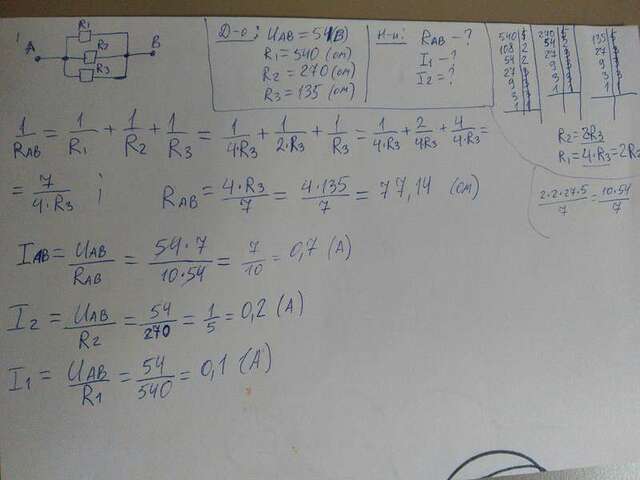 1
R1
A
R2
B
R3
Д-о: UAB = 54 (В)
R1 = 540 (ом)
R2 = 270 (ом)
R3 = 135 (ом)
Н-и: RAB - ?
I1 - ?
I2 = ?
540 | 5
108 | 2
54 | 2
27
9
3
1
270 | 5
54
27
9
3
1
135 | 5
27
9
3
1
R2 = 2R3
R1 = 4·R3 = 2R2
1/RAB = 1/R1 + 1/R2 + 1/R3 = 1/4R3 + 1/2·R3 + 1/R3 = 1/4·R3 + 2/4R3 + 4/4·R3 =
= 7/4·R3 ; RAB = 4·R3/7 = 4·135/7 = 77,14 (ом)
2·2·27·5/7 = 10·54/7
IAB = UAB/RAB = 54·7/10·54 = 7/10 = 0,7 (A)
I2 = UAB/R2 = 54/270 = 1/5 = 0,2 (A)
I1 = UAB/R1 = 54/540 = 0,1 (A)